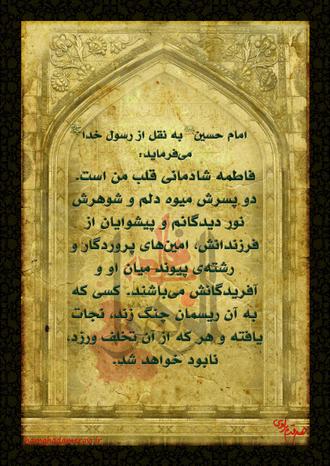 امام حسین به نقل از رسول خدا
می‌فرماید:
فاطمه شادمانی قلب من است.
دو پسرش میوه دلم و شوهرش
نور دیدگانم و پیشوایان از
فرزندانش، امین‌های پروردگار و
رشته‌ی پیوند میان او و
آفریدگانش می‌باشند. کسی که
به آن ریسمان چنگ زند، نجات
یافته و هر که از آن تخلف ورزد،
نابود خواهد شد.